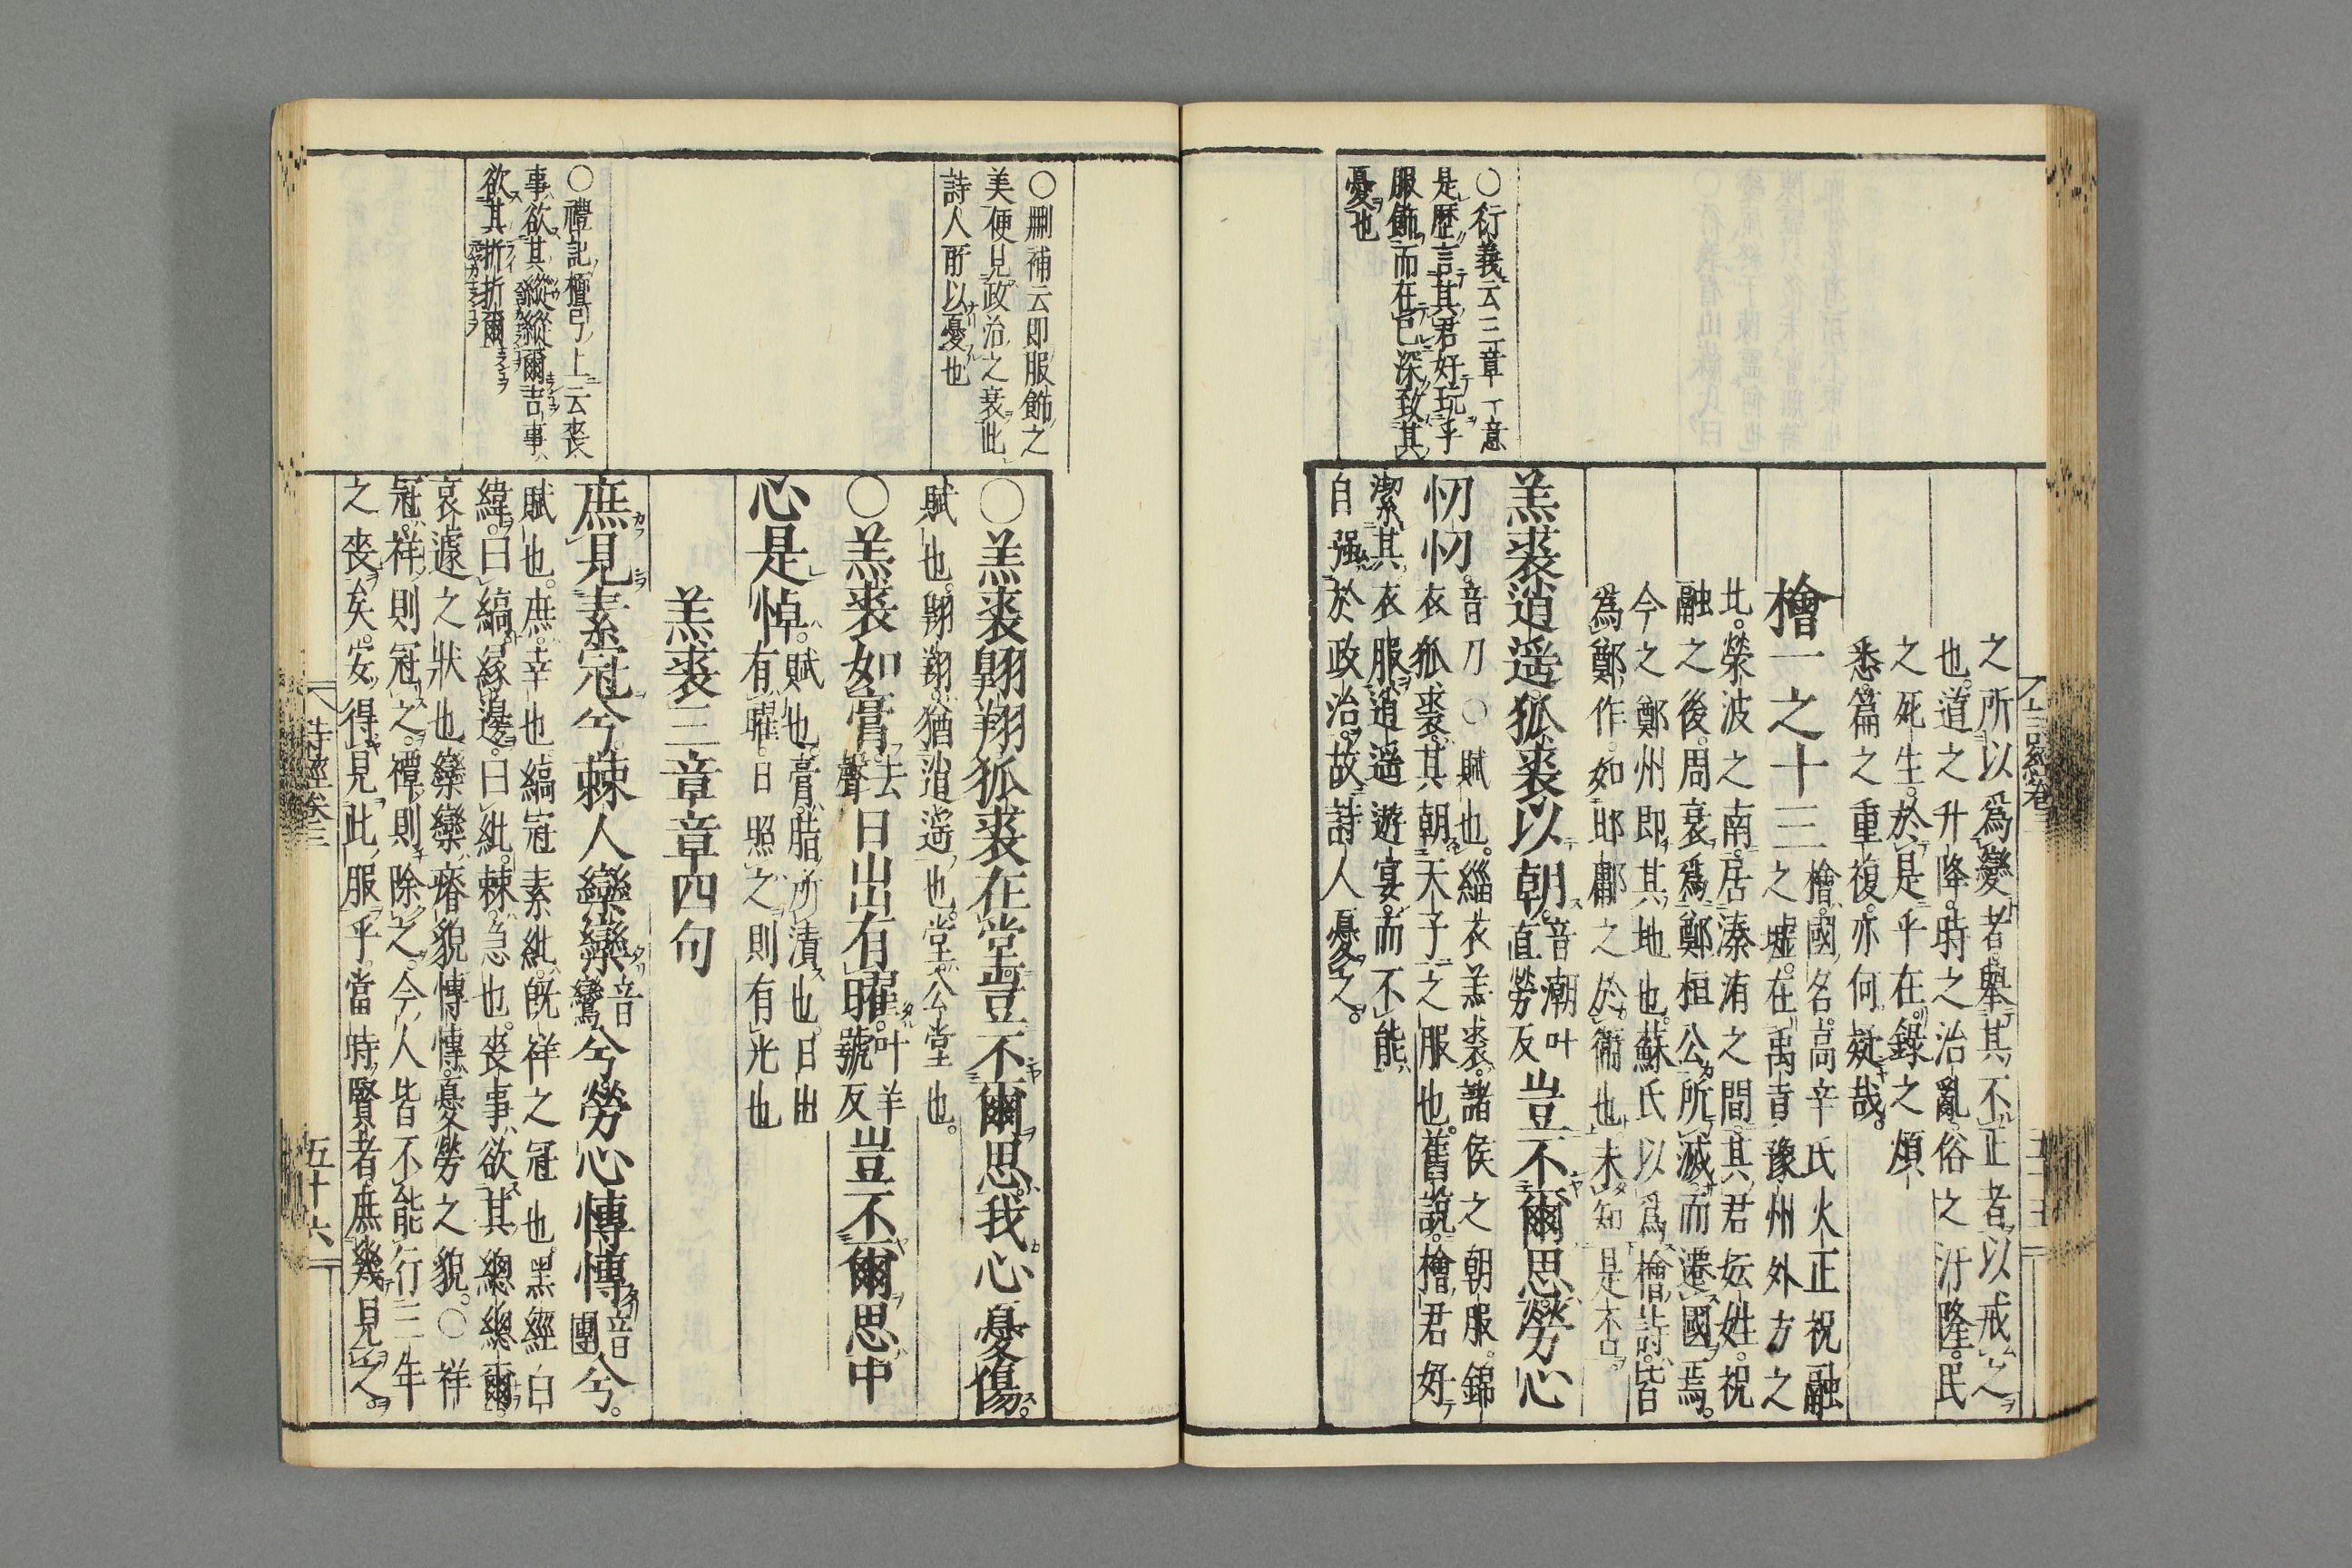 ○衍義云三章一意
是歷言其君好玩乎
服飾而在己深致其
憂也
之所以爲變者舉其不正者以戒之
也道之升降時之治亂俗之汙隆民
之死生於是乎在錄之煩
悉篇之重復亦何疑哉
檜一之十三
檜國名高辛氏火正祝融
之墟在禹貢豫州外方之
北滎波之南居溱洧之間其君妘姓祝
融之後周衰爲鄭桓公所滅而遷國焉
今之鄭州即其地也蘇氏以爲檜詩皆
爲鄭作如邶鄘之於衛也未知是否
羔裘逍遙狐裘以朝
音潮叶
直勞反
豈不爾思勞心
忉忉
音刀○賦也緇衣羔裘諸侯之朝服錦
衣狐裘其朝天子之服也舊說檜君好
潔其衣服逍遙遊宴而不能
自强於政治故詩人憂之
○刪補云即服飾之
美便見政治之衰此
詩人所以憂也
○禮記檀弓上云喪
事欲其縱縱爾吉事
欲其折折爾
○羔裘翱翔狐裘在堂豈不爾思我心憂傷
賦也翱翔猶逍遙也堂公堂也
○羔裘如膏
去
聲
日出有曜
叶羊
號反
豈不爾思中
心是悼
賦也膏脂所漬也日出
有曜日照之則有光也
羔裘三章章四句
庶見素冠兮棘人欒欒
音
鸞
兮勞心慱慱
音
團
兮
賦也庶幸也縞冠素紕既祥之冠也黑經白
緯曰縞緣邊曰紕棘急也喪事欲其總總爾
哀遽之狀也欒欒瘠貌慱慱憂勞之貌○祥
冠祥則冠之禫則除之今人皆不能行三年
之喪矣安得見此服乎當時賢者庶幾見之
詩經卷三
五十六